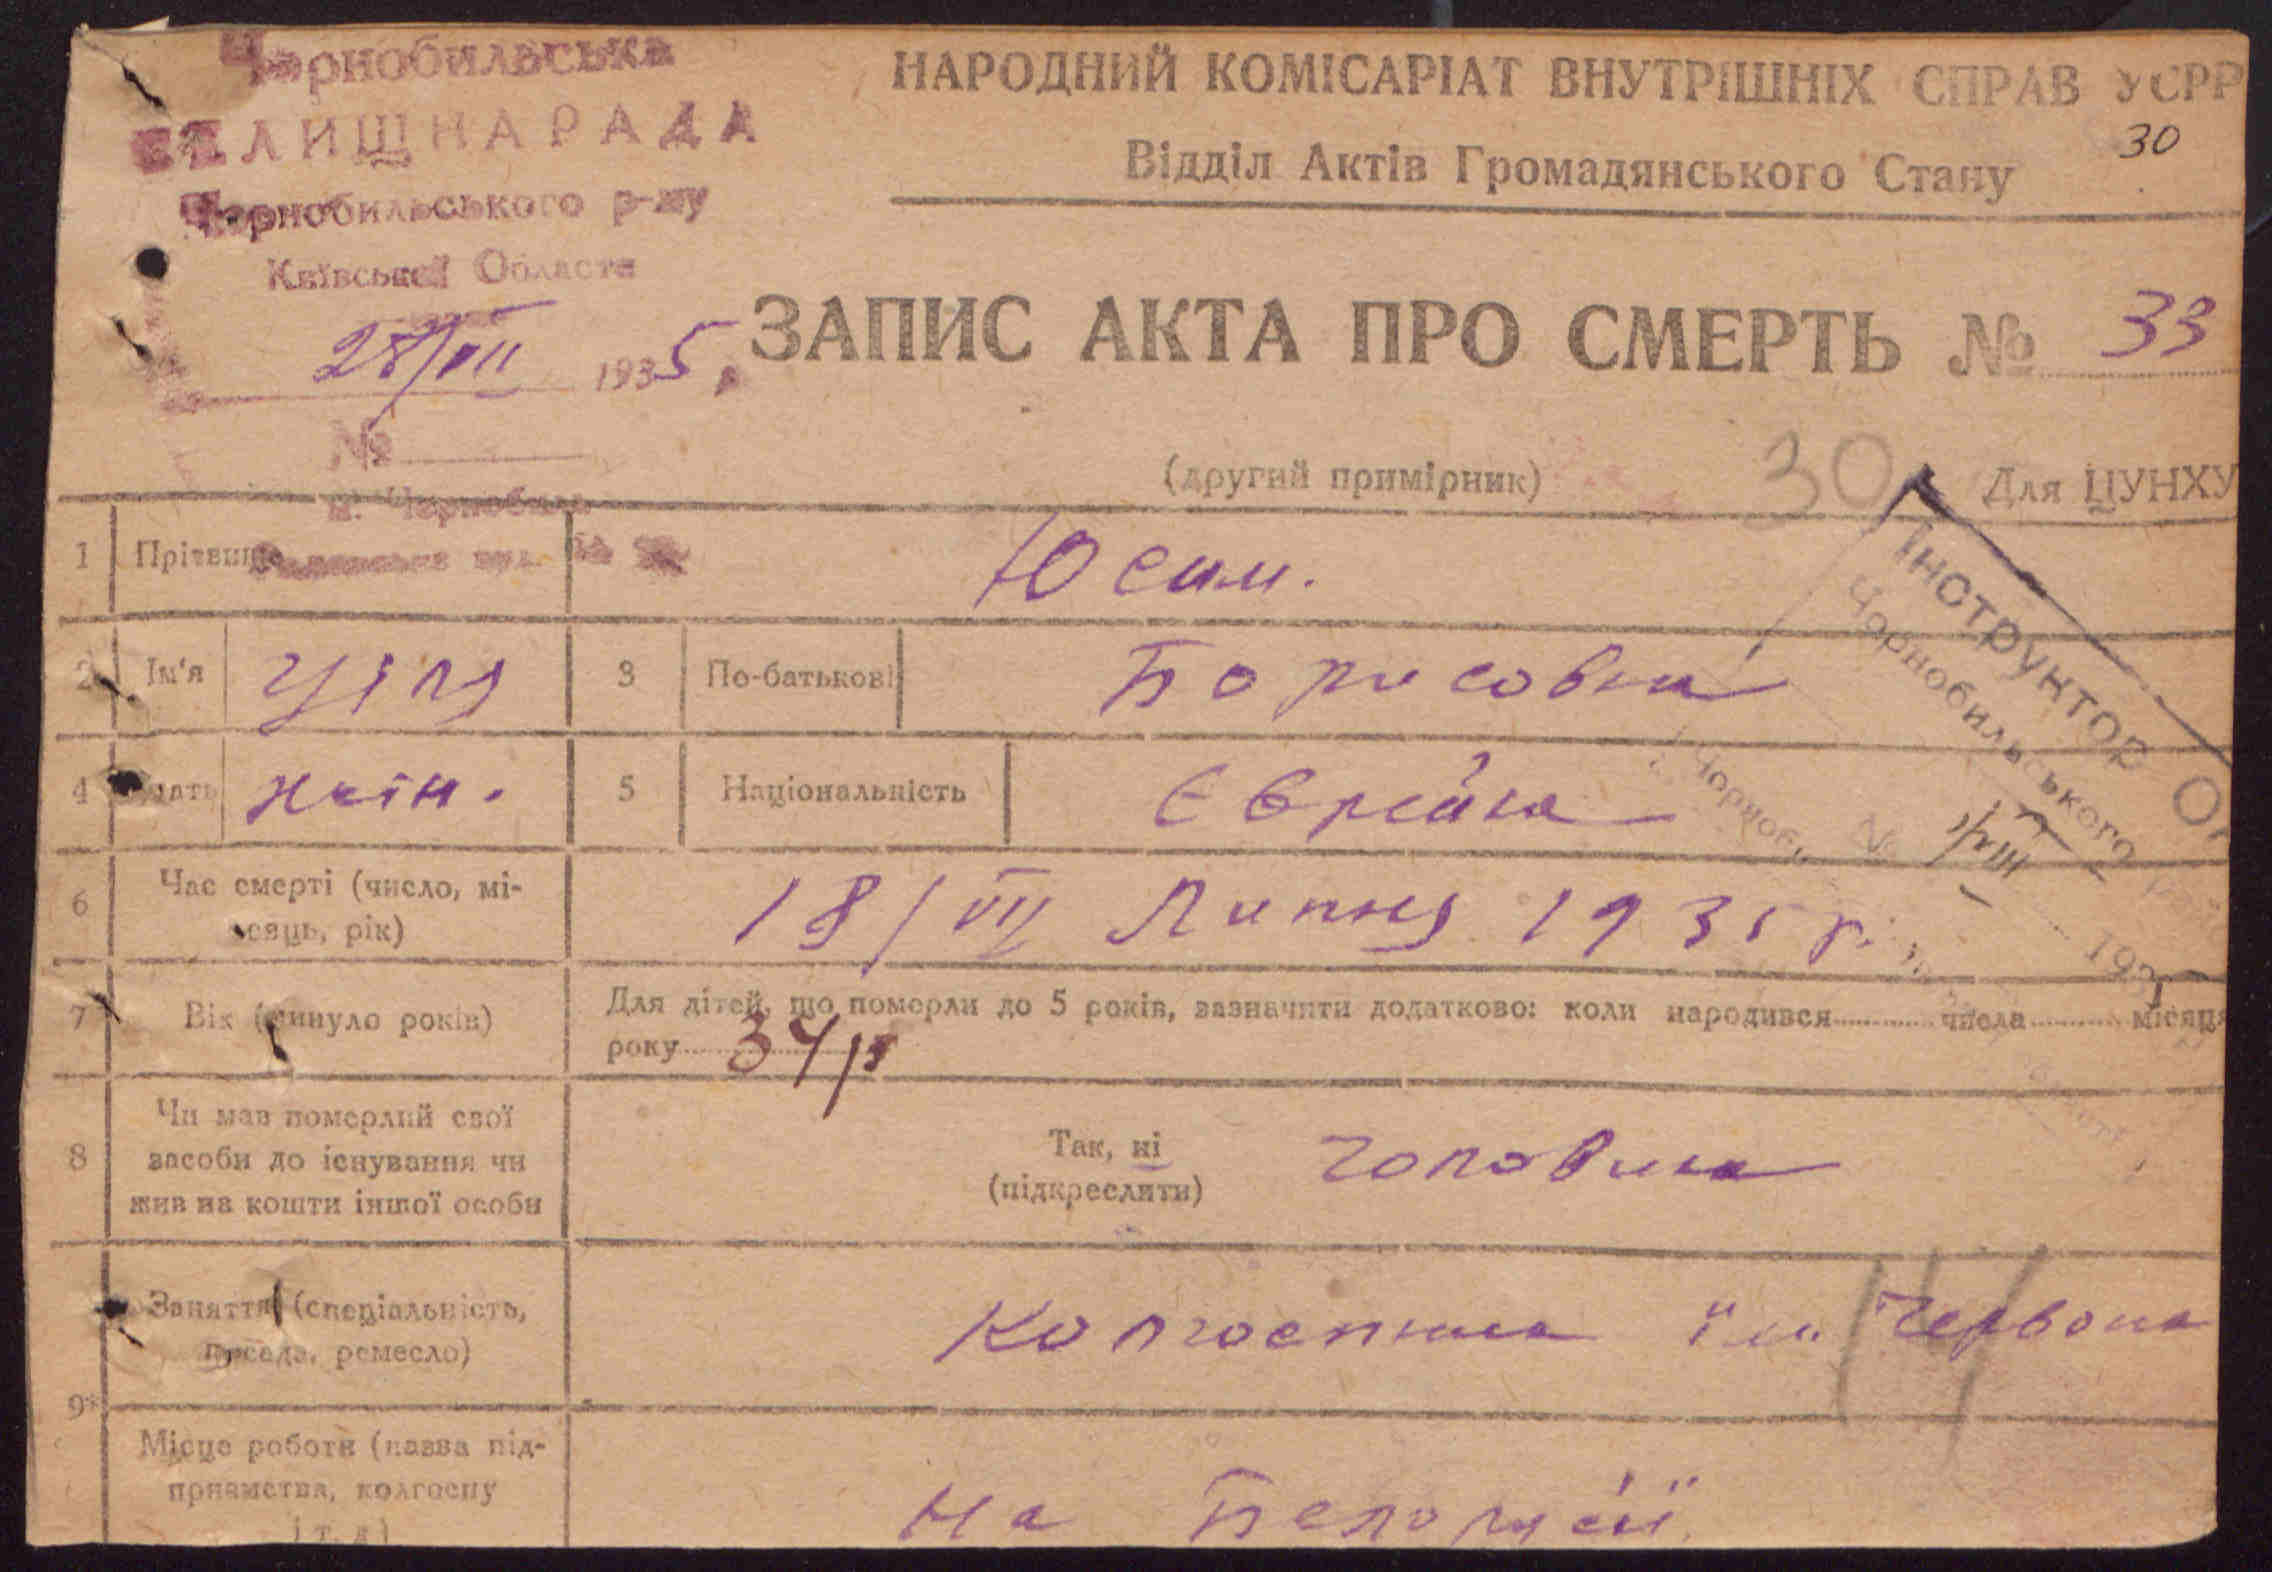 Чорнобильська
СЕЛИЩНАРАДА
Чорнобильського р-ну
Київської Области
28/VII 1935 р.
№
м. Чернобиль
НАРОДНИЙ КОМІСАРІАТ ВНУТРІШНІХ СПРАВ УСРР
30
Відділ Актів Громадянського Стану
ЗАПИС АКТА ПРО СМЕРТЬ № 33
(другий примірник)
30
Для ЦУНХУ
Інструктор
Чорнобильського
193
1 Прізвище Юсим.
2 Ім'я Ціля 3 По-батькові Борисовна
4 жін. 5 Національність Єврейка
6 Час смерті (число, мі-
сяць, рік) 18/VII Липня 1935 р.
7 Вік (минуло років) Для дітей, що померли до 5 років, зазначити додатково: коли народився числа місяця
року 34 р
8 Чи мав померлий свої
засоби до існування чи
жив на кошти іншої особи
Так, ні
(підкреслити)
чоловіка
9 Заняття (спеціальність,
посада, ремесло) Колгоспниця їм. Червона
Місце роботи (назва під-
приємства, колгоспу
і т. д)
на Белорусії